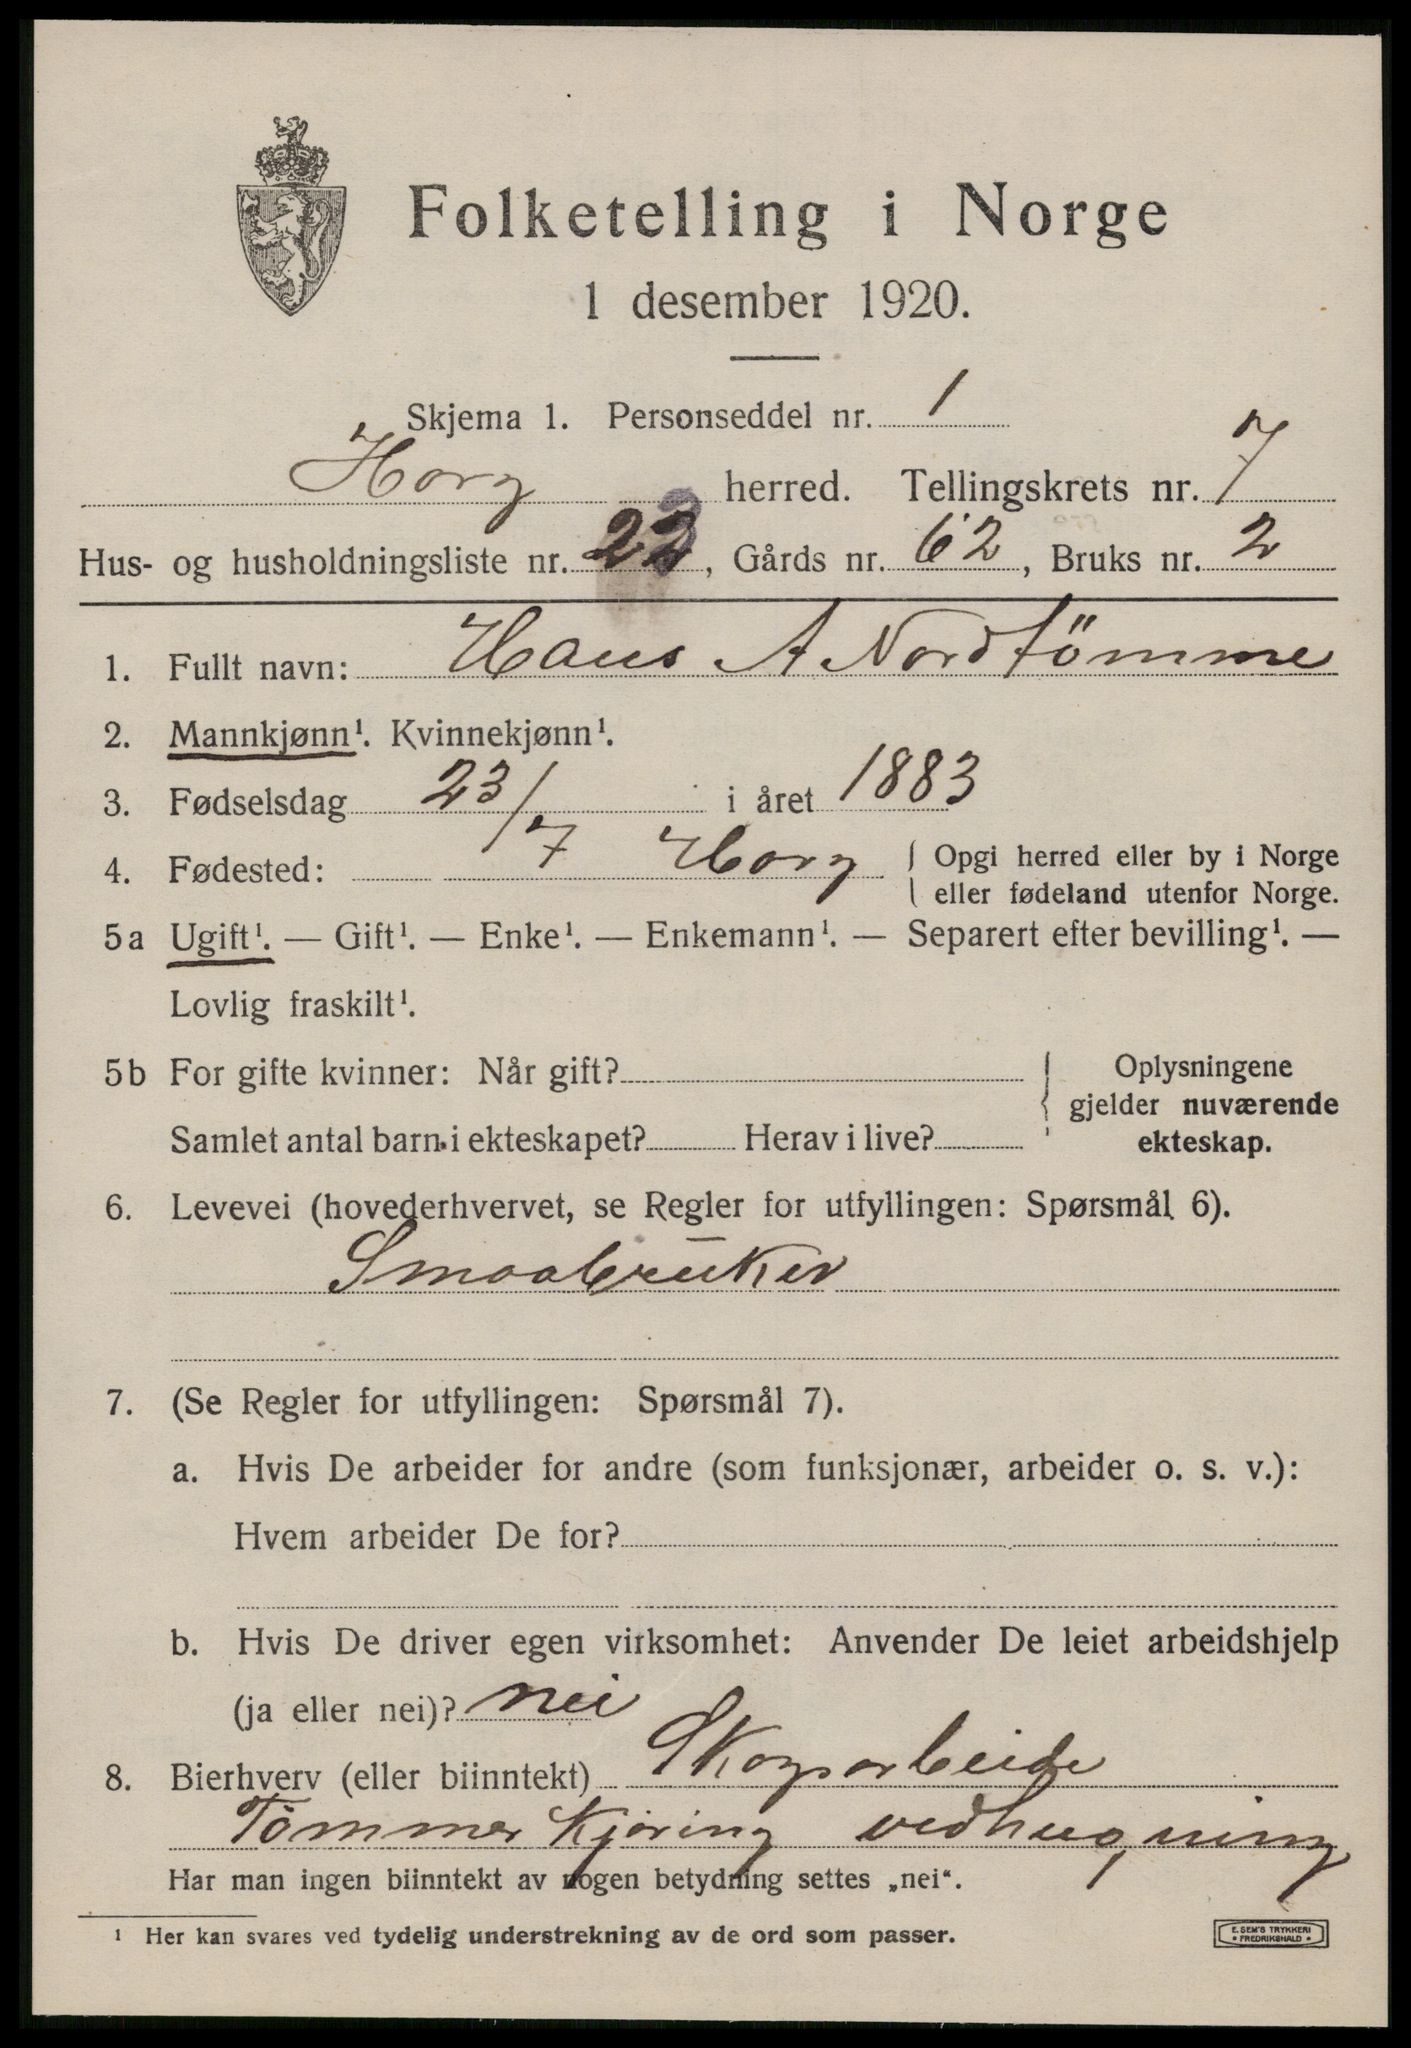 Folketelling i Norge
1 desember 1920.
Skjema 1. Personseddel nr. 1
Horg herred. Tellingskrets nr. 7
Hus- og husholdningsliste nr. 23, Gårds nr. 62, Bruks nr. 2
1. Fullt navn: Hans A Nordtömme
2. Mannkjønn¹. Kvinnekjønn¹.
3. Fødselsdag 23/7 i året 1883
4. Fødested: Horg { Opgi herred eller by i Norge
eller fødeland utenfor Norge.
5a Ugift¹. — Gift¹. — Enke¹. — Enkemann¹. — Separert efter bevilling¹. —
Lovlig fraskilt¹.
5b For gifte kvinner: Når gift? { Oplysningene
gjelder nuværende
Samlet antal barn i ekteskapet? Herav i live? ekteskap.
6. Levevei (hovederhvervet, se Regler for utfyllingen: Spørsmål 6).
Smaabruker
7. (Se Regler for utfyllingen: Spørsmål 7).
a. Hvis De arbeider for andre (som funksjonær, arbeider o. s. v.):
Hvem arbeider De for?
b. Hvis De driver egen virksomhet: Anvender De leiet arbeidshjelp
(ja eller nei)? nei
8. Bierhverv (eller biinntekt) Skogsarbeide
Tömmer Kjøring vedhugning
Har man ingen biinntekt av nogen betydning settes „nei“.
¹ Her kan svares ved tydelig understrekning av de ord som passer.
E. SEM'S TRYKKERI
• FREDRIKSHALD •